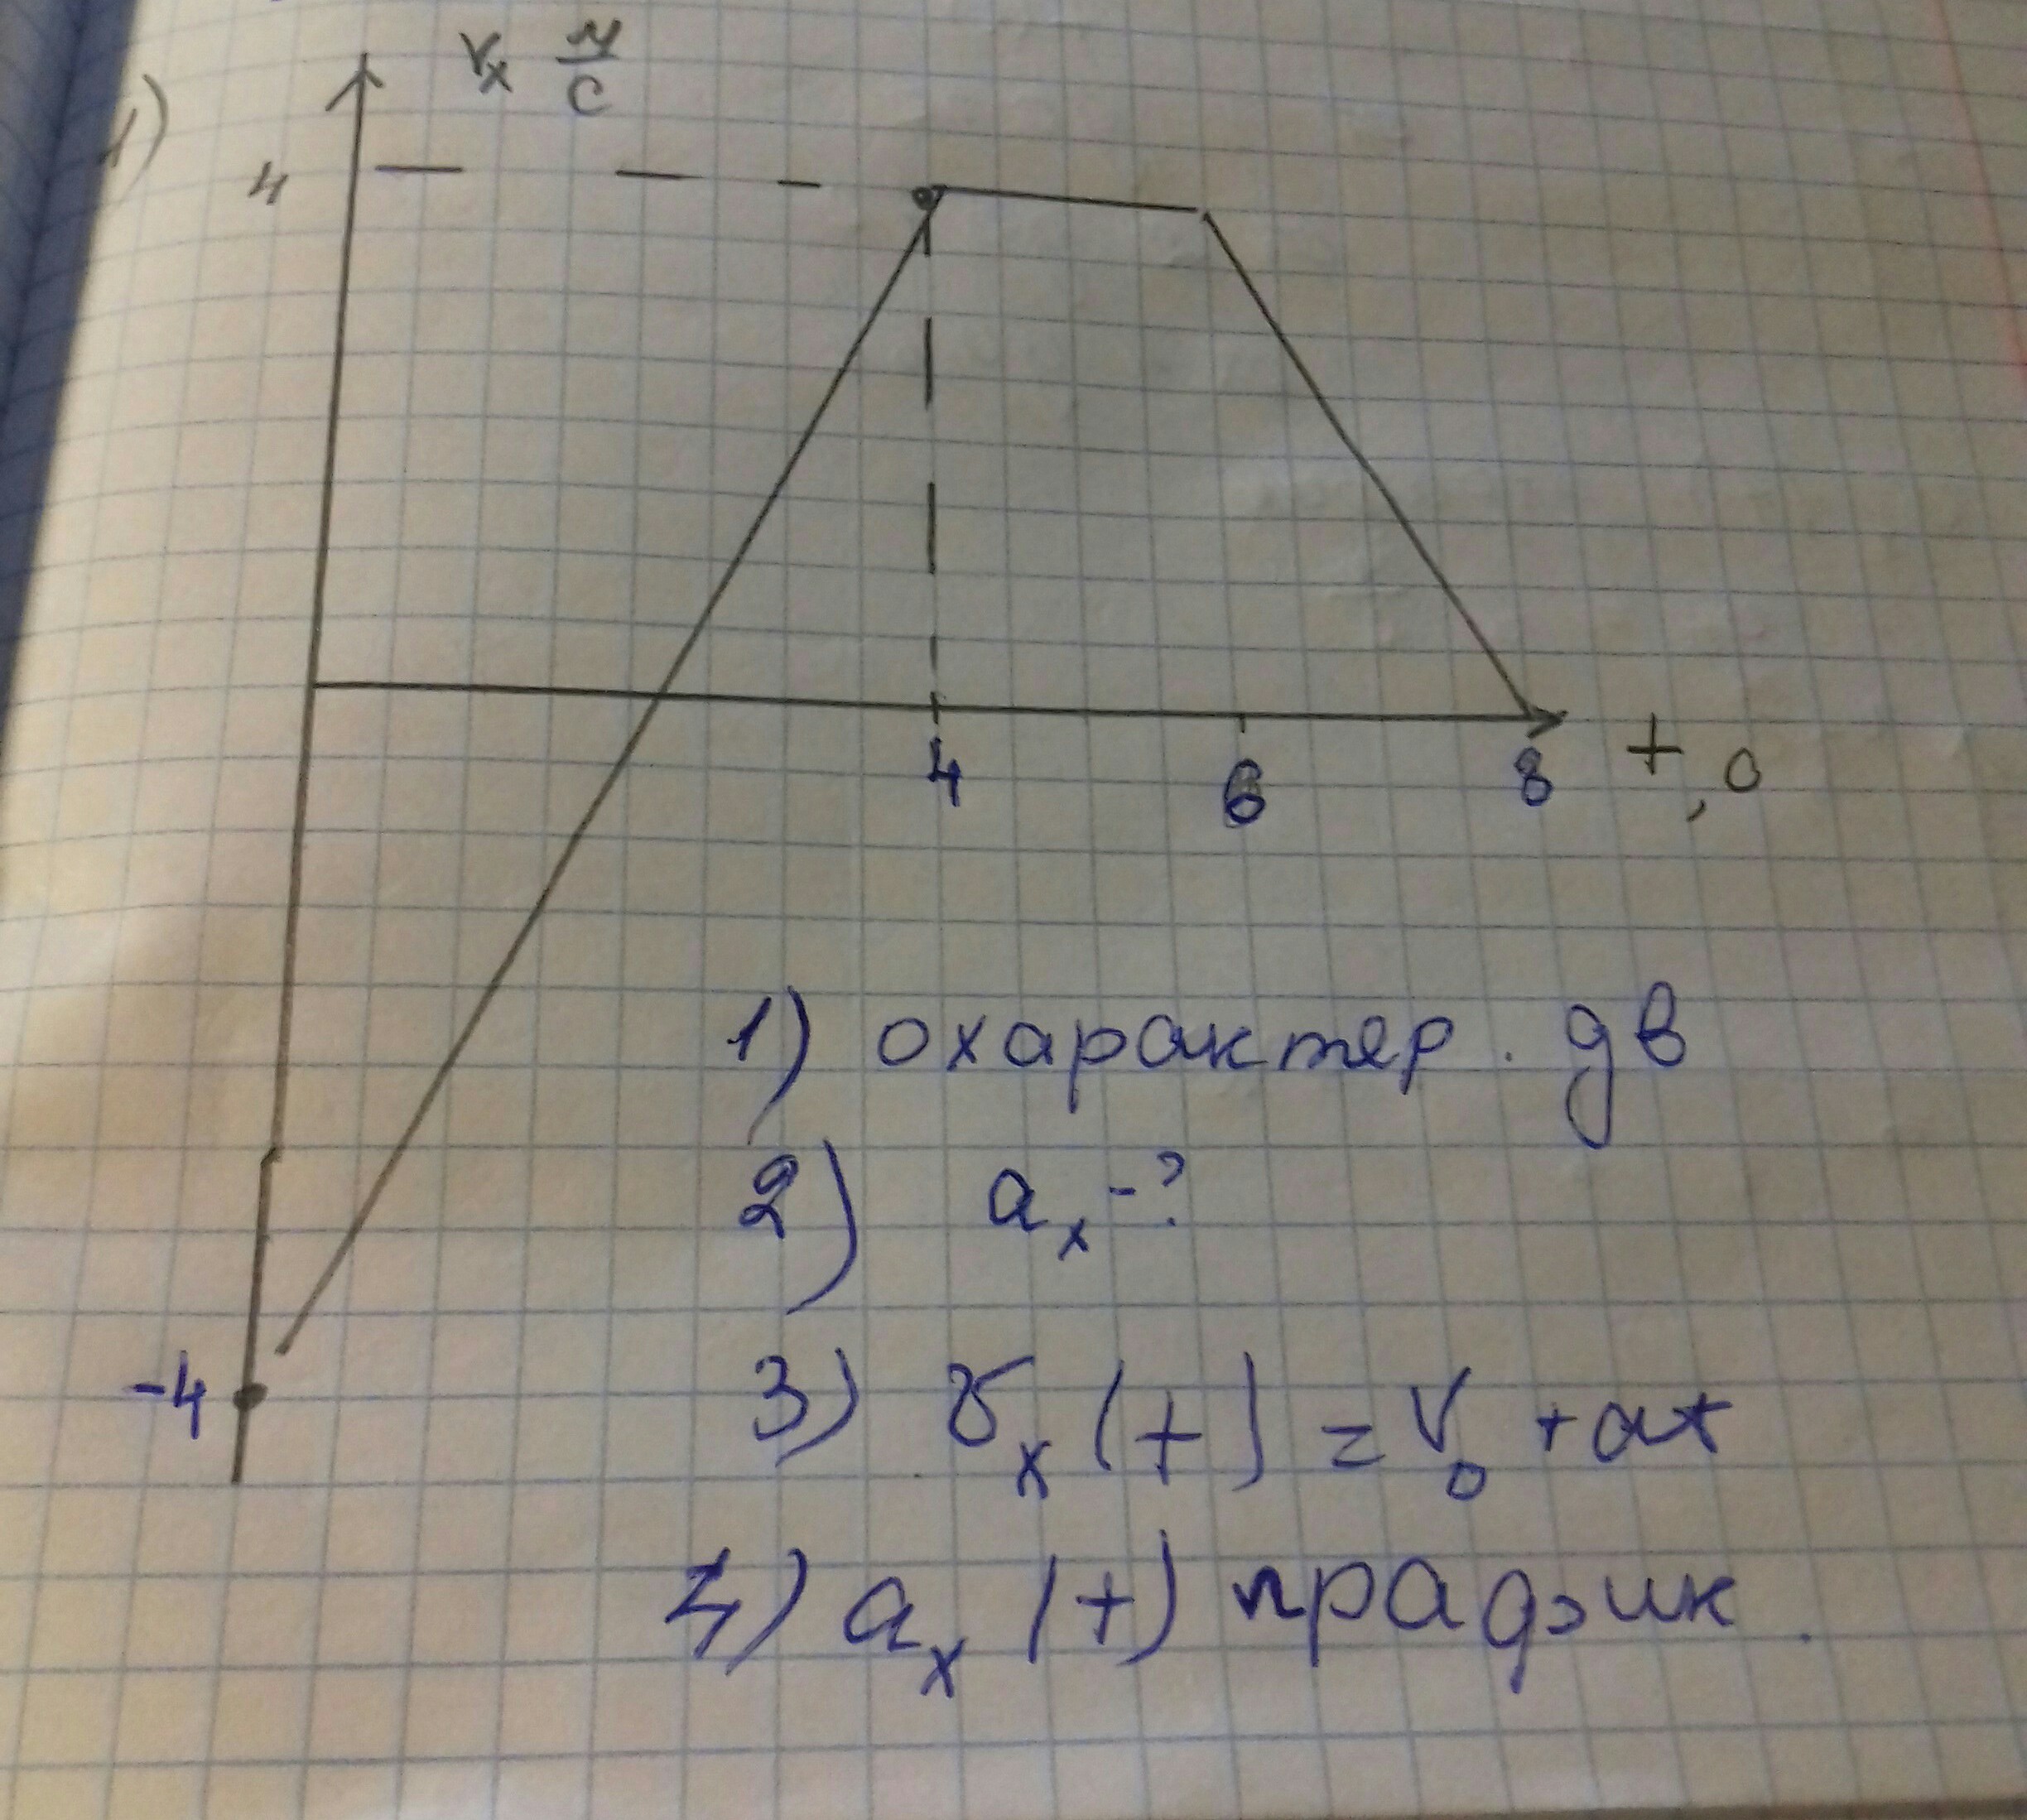 1)
Vx м/с
4
4 6 8 t, c
-4
1) охарактер. дв
2) ax -?
3) υx (t) = V0 + at
4) ax (t) градэик.